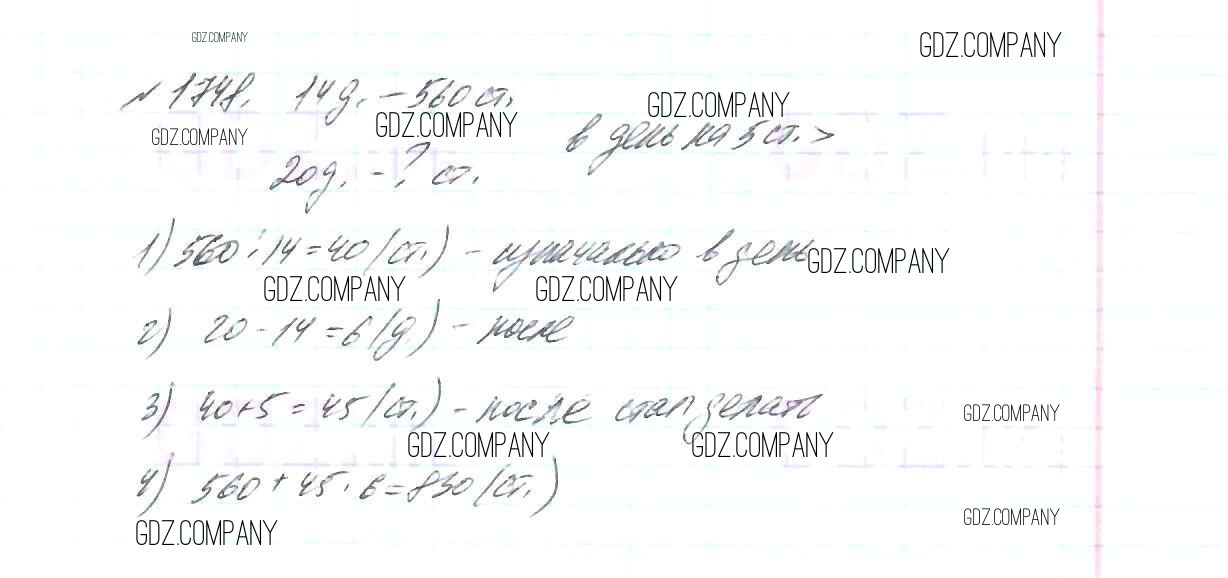 GDZ.COMPANY
GDZ.COMPANY
№ 1748. 14 д. – 560 ст.
GDZ.COMPANY
GDZ.COMPANY
GDZ.COMPANY
в день на 5 ст. >
20 д. – ? ст.
1) 560 : 14 = 40 (ст.) – изначально в день
GDZ.COMPANY
GDZ.COMPANY
GDZ.COMPANY
2) 20 – 14 = 6 (д.) – после
3) 40 + 5 = 45 (ст.) – после стал делать
GDZ.COMPANY
GDZ.COMPANY
GDZ.COMPANY
4) 560 + 45 · 6 = 830 (ст.)
GDZ.COMPANY
GDZ.COMPANY